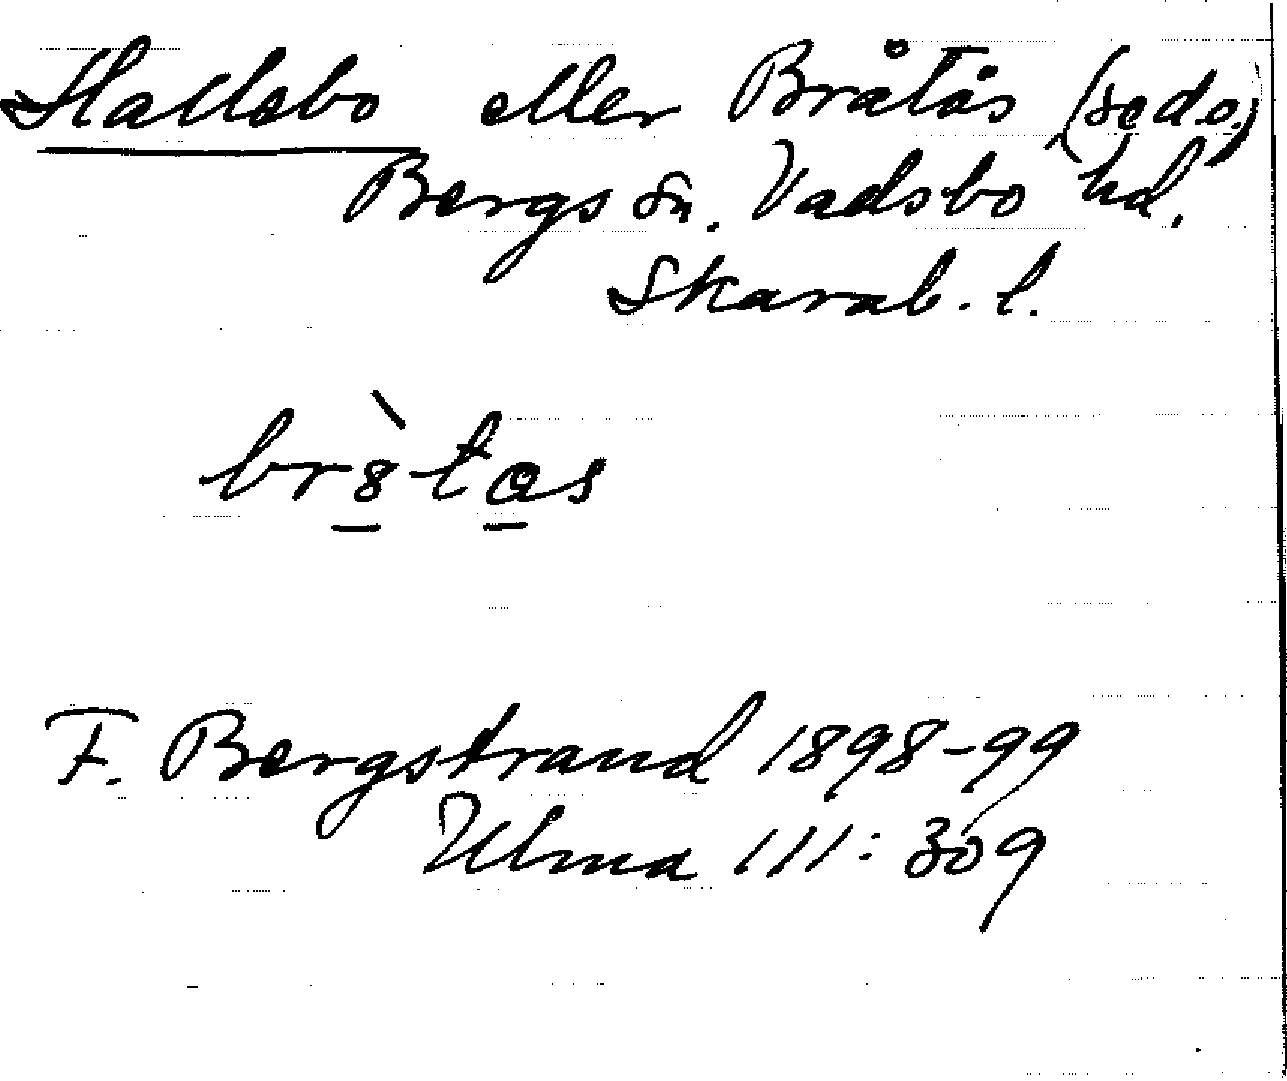 Hallsbo eller Bråtås (se d.o.)
Bergs sn. Vadsbo hd.
Skarab. l.
br8̀tas
F. Bergstrand 1898-99
Ulma 111:309